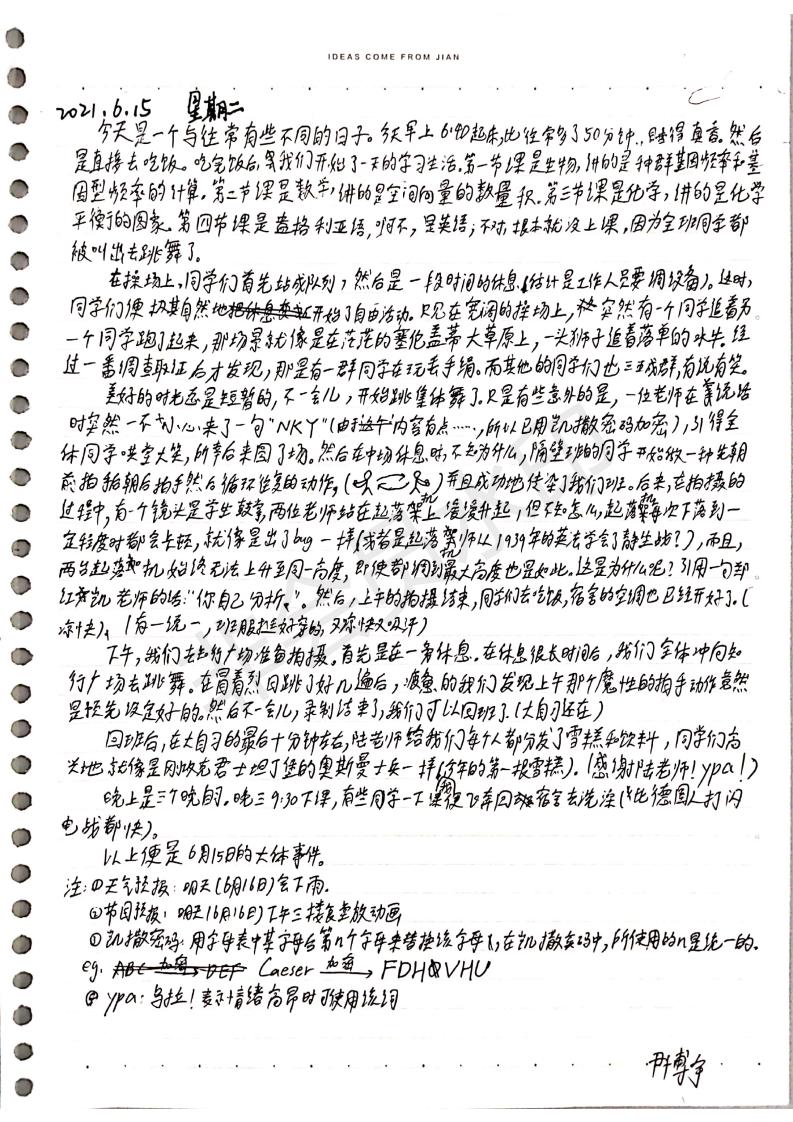 IDEAS COME FROM JIAN
2021.6.15 星期二
今天是一个与往常有些不同的日子。今天早上6:40起床,比往常多了50分钟,睡得真香。然后
是直接去吃饭。吃完饭后,我们开始了一天的学习生活。第一节课是生物,讲的是种群基因频率和基
因型频率的计算。第二节课是数学,讲的是空间向量的数量积。第三节课是化学,讲的是化学
平衡的因素。第四节课是盎格利亚语,啊不,是英语;不对,根本就没上课,因为全班同学都
被叫出去跳舞了。
在操场上,同学们首先站成队列,然后是一段时间的休息(估计是工作人员要调设备)。这时,
同学们便极其自然地开始了自由活动。只见在宽阔的操场上,突然有一个同学追着另
一个同学跑了起来,那场景就像是在茫茫的塞伦盖蒂大草原上,一头狮子追着落单的水牛。经
过一番调查取证后才发现,那是有一群同学在玩丢手绢。而其他的同学们也三五成群,有说有笑。
美好的时光总是短暂的,不一会儿,开始跳集体舞了。只是有些意外的是,一位老师在说话
时突然一不小心来了一句“NKY”(由于这个内容有点……,所以已用凯撒密码加密),引得全
体同学哄堂大笑,所幸后来圆了场。然后在中场休息时,不知为什么,隔壁班的同学开始做一种先朝
前拍和朝后拍手然后循环往复的动作,()并且成功地传染了我们班。后来,在拍摄的
过程中,有个镜头是学生鼓掌,两位老师站在起落机上漫漫升起,但不知怎么,起落机每次下落到一
定程度时都会卡顿,就像是出了bug一样(或者是起落机师从1939年的英法学会了静坐战?),而且,
两台起落机始终无法上升至同一高度,即使都调到最大高度也是如此。这是为什么呢?引用一句邹
红凯老师的话:“你自己分析。”。然后,上午的拍摄结束,同学们去吃饭,宿舍的空调也已经开好了。(
凉快)。(有一统一,班服挺好穿的,又凉快又吸汗)
下午,我们去知行广场准备拍摄。首先是在一旁休息。在休息很长时间后,我们全体冲向知
行广场去跳舞。在冒着烈日跳了好几遍后,疲惫的我们发现上午那个魔性的拍手动作竟然
是预先设定好的。然后不一会儿,录制结束了,我们可以回班了。(大自习还在)
回班后,在大自习的最后十分钟左右,陆老师给我们每个人都分发了雪糕和饮料,同学们高
兴地就像是刚攻克君士坦丁堡的奥斯曼士兵一样(今年的第一根雪糕)。(感谢陆老师!ypa!)
晚上是三个晚自。晚三9:30下课,有些同学一下课便飞奔回宿舍去洗澡(比德国人打闪
电战都快)。
以上便是6月15日的大体事件。
注:①天气预报:明天(6月16日)会下雨.
②节目预报:明天(6月16日)下午三楼食堂放动画
③凯撒密码:用字母表中某字母后第n个字母来替换该字母,在凯撒密码中,所使用的n是统一的.
eg. ABC 加密 DEF Caeser 加密→ FDHVHU
④ypa:乌拉!表示情绪高昂时可使用该词